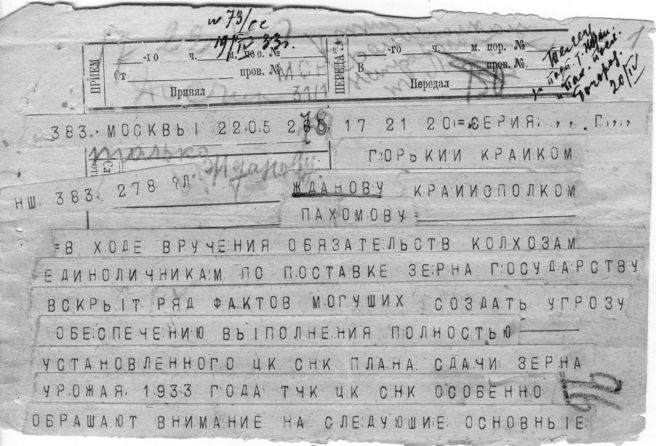 № 73/сс
19/IV 33г.
ПРИЕМ
-го ч. м. по о. №
от пров. №
Принял
31/1
ПЕРЕДАЧА
-го ч. м. пор. №
В пров. №
Передал
20/IV
1
383. МОСКВЫ 2205 278 17 21 20 = СЕРИЯ ,, Г,,,
78
только Жданову
ГОРЬКИЙ КРАЙКОМ
НШ. 383. 278 ?Л.
ЖДАНОВУ КРАИИСПОЛКОМ
ПАХОМОВУ=
=В ХОДЕ ВРУЧЕНИЯ ОБЯЗАТЕЛЬСТВ КОЛХОЗАМ
ЕДИНОЛИЧНИКАМ ПО ПОСТАВКЕ ЗЕРНА ГОСУДАРСТВУ
ВСКРЫТ РЯД ФАКТОВ МОГУШИХ СОЗДАТЬ УГРОЗУ
ОБЕСПЕЧЕНИЮ ВЫПОЛНЕНИЯ ПОЛНОСТЬЮ
УСТАНОВЛЕННОГО ЦК СНК ПЛАНА СДАЧИ ЗЕРНА
УРОЖАЯ 1933 ГОДА ТЧК ЦК СНК ОСОБЕННО
ОБРАШАЮТ ВНИМАНИЕ НА СЛЕДУЮШИЕ ОСНОВНЫЕ